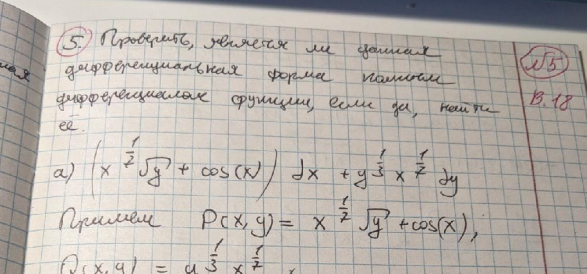 5. Проверить, является ли данная
дифференциальная форма полным
дифференциалом функции, если да, найти
её.
а) (x^{1/2} √y + cos(x)) dx + y^{1/3} x^{1/2} dy
Примем P(x, y) = x^{1/2} √y + cos(x),
Q(x, y) = y^{1/3} x^{1/2}
№5
В. 18